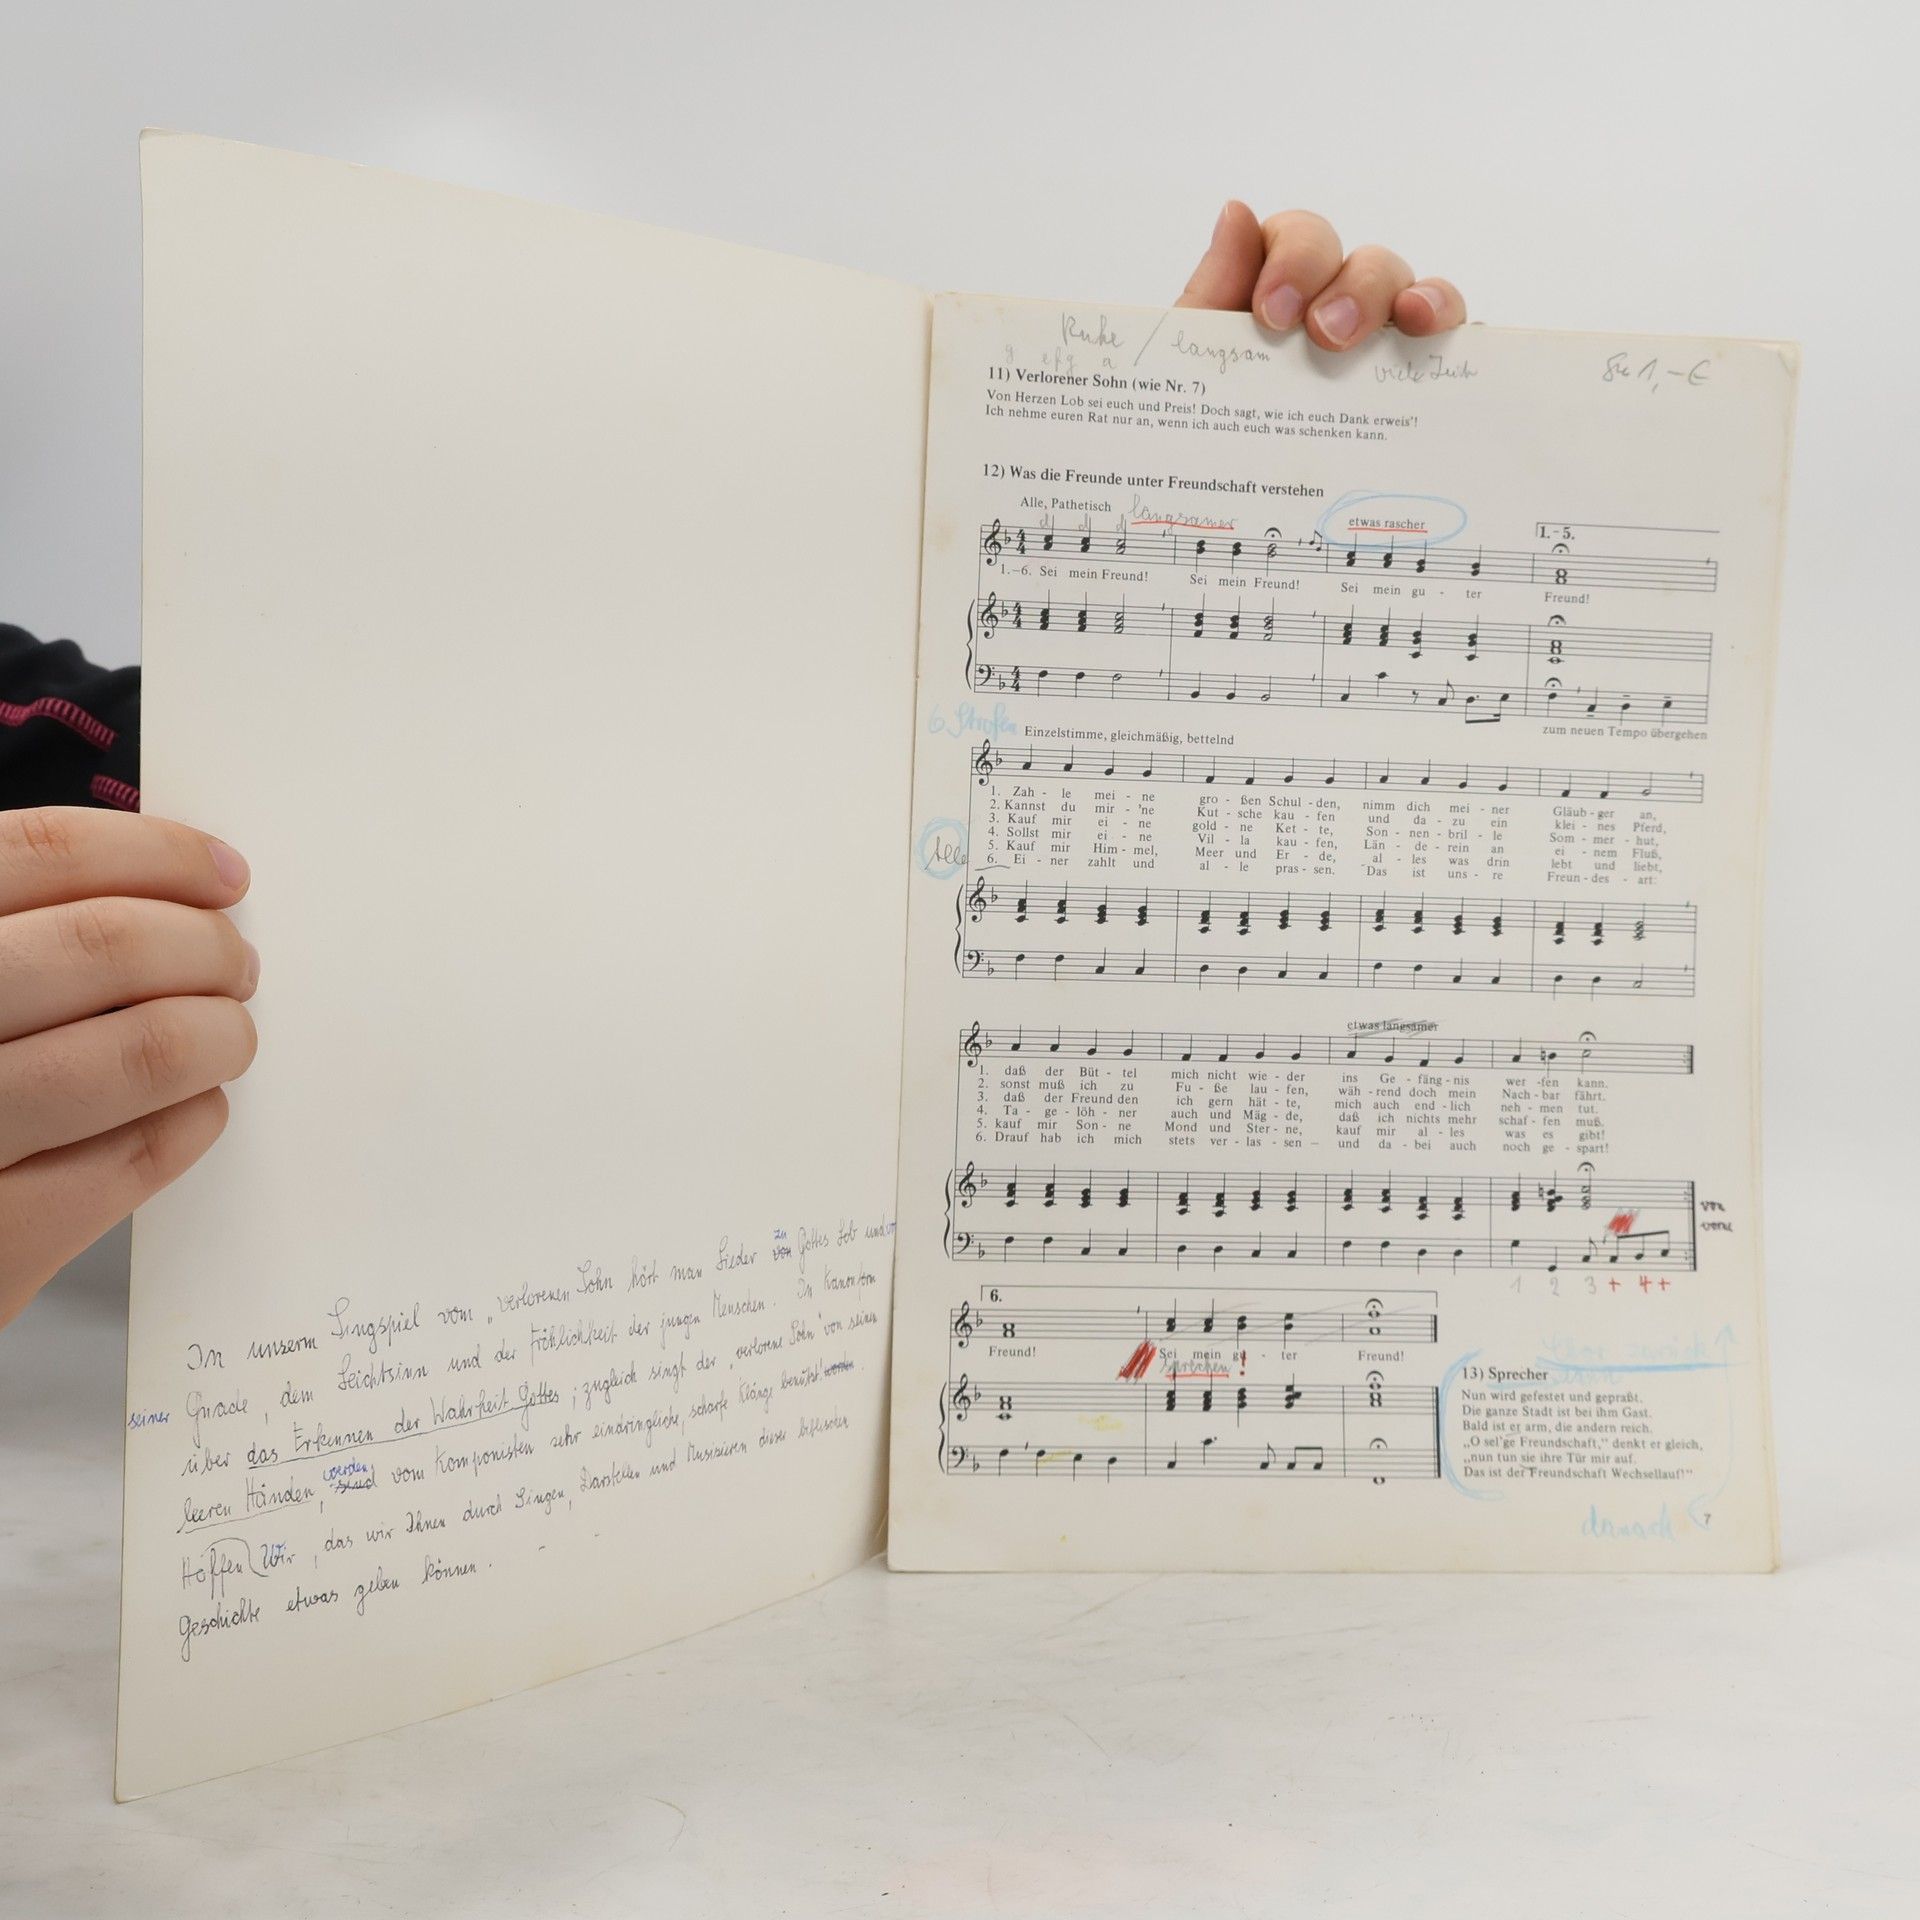 In unserm Singspiel vom „verlorenen Sohn hört man Lieder zu von Gottes Lob und
seiner Gnade, dem Leichtsinn und der Fröhlichkeit der jungen Menschen. In Kanonform
über das Erkennen der Wahrheit Gottes; zugleich singt der „verlorene Sohn" von seinen
leeren Händen, werden sind vom Komponisten sehr eindringliche, scharfe Klänge benützt worden.
Hoffen Wir, das wir Ihnen durch Singen, Darstellen und Musizieren dieser biblischen
Geschichte etwas geben können.
Ruhe / langsam
g efg a
viele Zeit
1,- €
11) Verlorener Sohn (wie Nr. 7)
Von Herzen Lob sei euch und Preis! Doch sagt, wie ich euch Dank erweis'!
Ich nehme euren Rat nur an, wenn ich auch euch was schenken kann.
12) Was die Freunde unter Freundschaft verstehen
Alle, Pathetisch langsamer etwas rascher
1.-5.
1.–6. Sei mein Freund! Sei mein Freund! Sei mein gu - ter Freund!
zum neuen Tempo übergehen
6 Strofen
Einzelstimme, gleichmäßig, bettelnd
1. Zah - le mei - ne gro - ßen Schul - den, nimm dich mei - ner Gläub - ger an,
2. Kannst du mir -'ne Kut - sche kau - fen und da - zu ein klei - nes Pferd,
3. Kauf mir ei - ne gold - ne Ket - te, Son - nen - bril - le Som - mer - hut,
4. Sollst mir ei - ne Vil - la kau - fen, Län - de - rein an ei - nem Fluß,
5. Kauf mir Him - mel, Meer und Er - de, al - les was drin lebt und liebt,
Alle
6. Ei - ner zahlt und al - le pras - sen. Das ist uns - re Freun - des - art:
etwas langsamer
1. daß der Büt - tel mich nicht wie - der ins Ge - fäng - nis wer - fen kann.
2. sonst muß ich zu Fu - ße lau - fen, wäh - rend doch mein Nach - bar fährt.
3. daß der Freund den ich gern hät - te, mich auch end - lich neh - men tut.
4. Ta - ge - löh - ner auch und Mäg - de, daß ich nichts mehr schaf - fen muß.
5. kauf mir Son - ne Mond und Ster - ne, kauf mir al - les was es gibt!
6. Drauf hab ich mich stets ver - las - sen – und da - bei auch noch ge - spart!
von
vorne
1 2 3 + 4 +
6.
Freund! Sei mein gu - ter Freund!
sprechen !
zurück
13) Sprecher
Nun wird gefestet und gepraßt.
Die ganze Stadt ist bei ihm Gast.
Bald ist er arm, die andern reich.
„O sel'ge Freundschaft," denkt er gleich,
„nun tun sie ihre Tür mir auf.
Das ist der Freundschaft Wechsellauf!"
danach
7